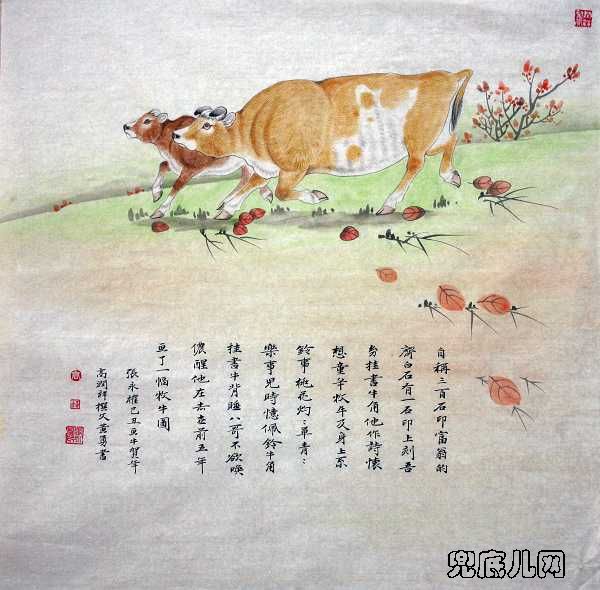 自稱三百石印富翁的
齊白石有一石印上刻吾
幼挂書牛角他作詩懷
想童年牧牛及身上系
鈴事桃花灼灼草青青
樂事兒時憶佩鈴牛角
挂書牛背睡八哥不欲喚
儂醒他在去世前五年
畫了一幅牧牛圖
張永權己丑丑牛賀年
高潤祥撰文黃勇書
兜底儿网